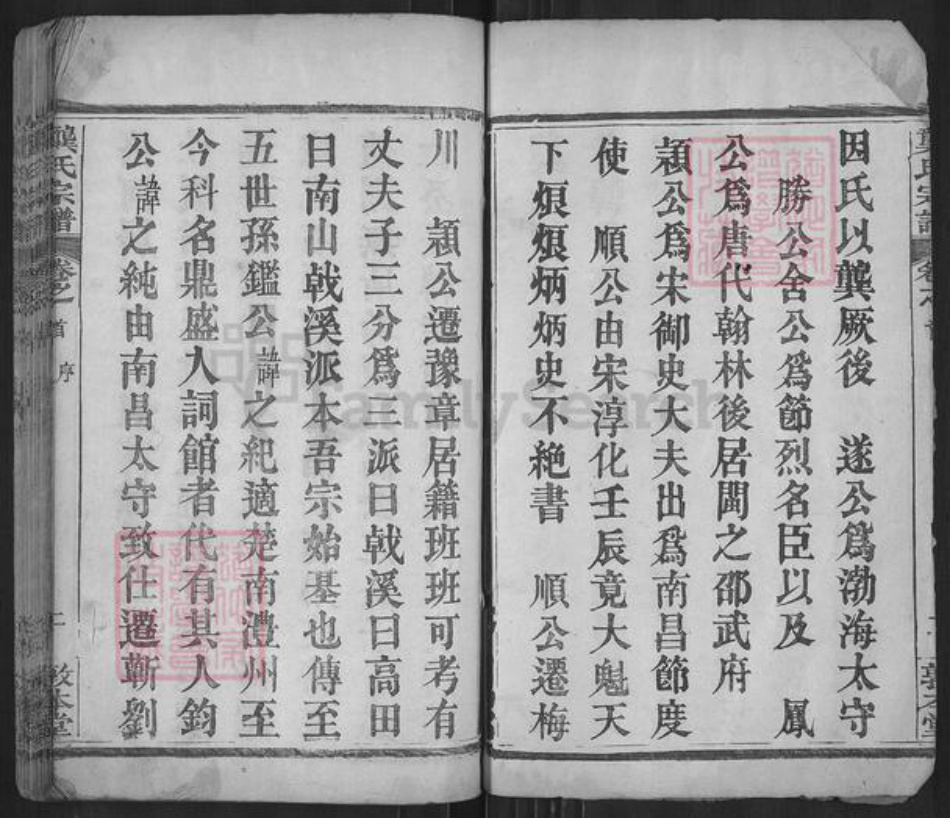 因氏以龔厥後　遂公爲渤海太守
勝公舍公爲節烈名臣以及　鳳
公爲唐代翰林後居閩之邵武府
穎公爲宋御史大夫出爲南昌節度
使　順公由宋淳化壬辰竟大魁天
下烺烺炳炳史不絶書　順公遷梅
川　穎公遷豫章居籍班班可考有
丈夫子三分爲三派曰戟溪曰高田
曰南山戟溪派本吾宗始基也傳至
五世孫鑑公諱之紀適楚南澧州至
今科名鼎盛入詞館者代有其人鈞
公諱之純由南昌太守致仕遷蘄劉
龔氏宗譜　卷之首　序　二　敦本堂
FamilySearch